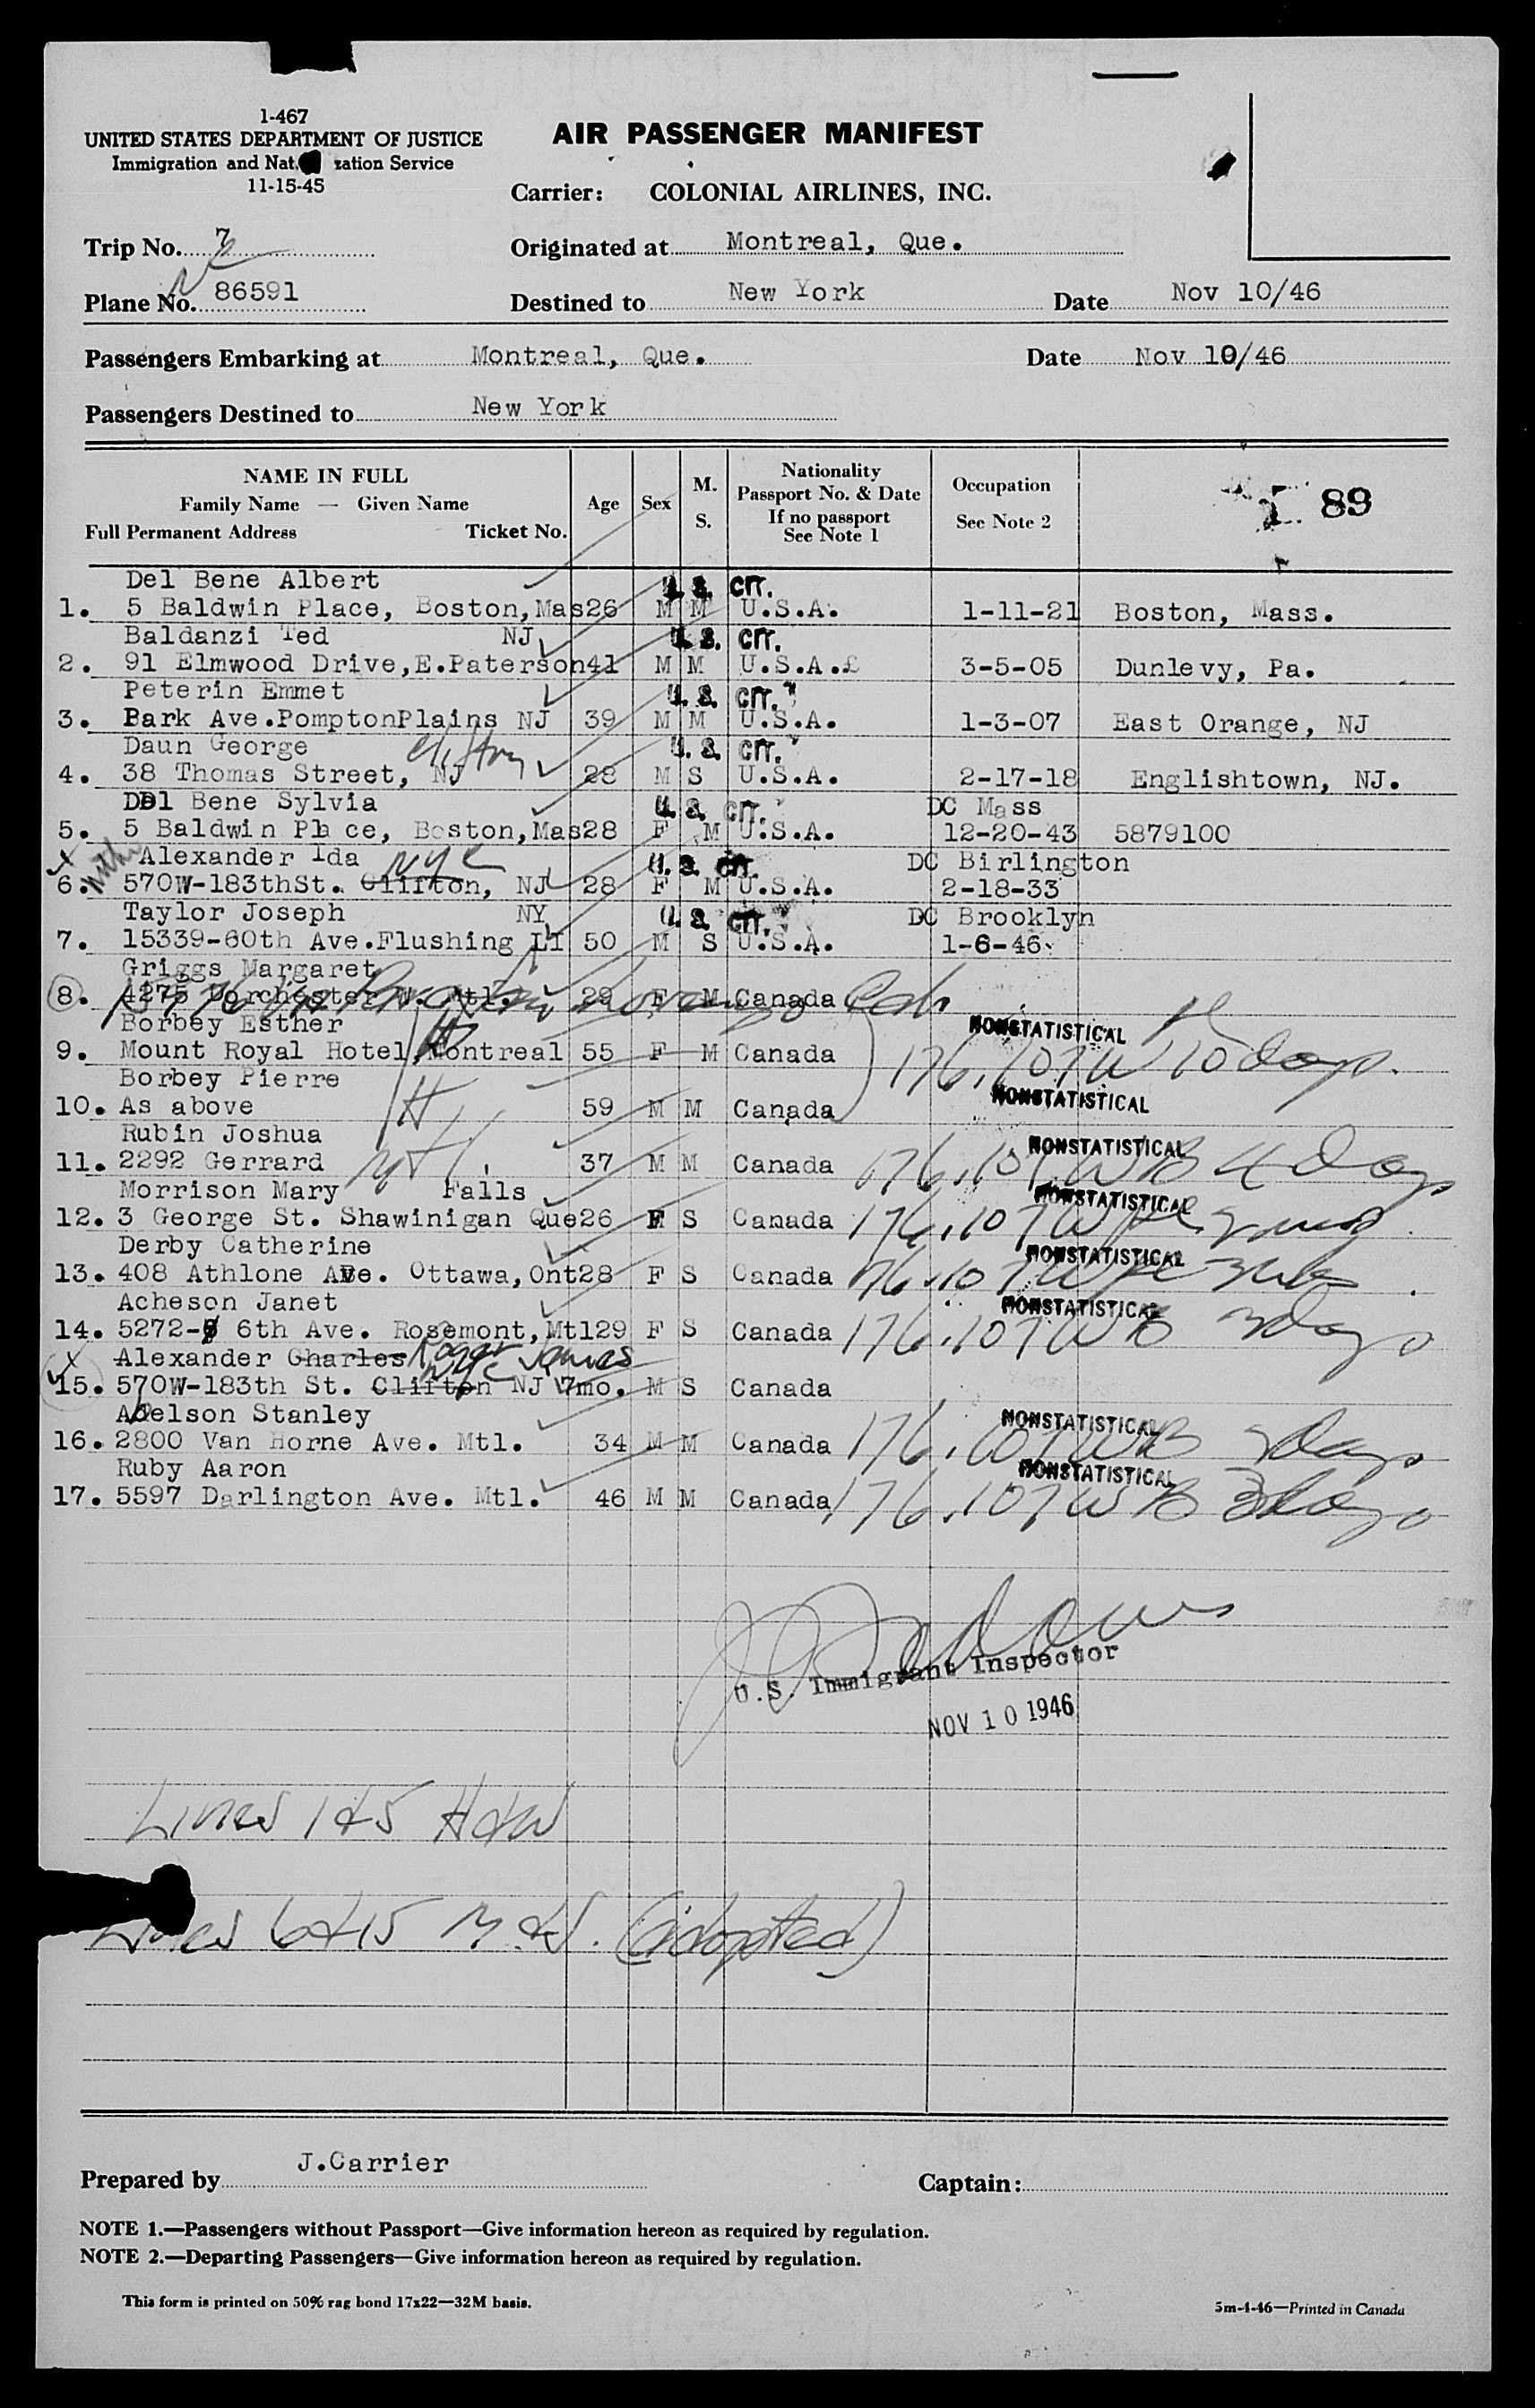 1-467
UNITED STATES DEPARTMENT OF JUSTICE
Immigration and Nat zation Service
11-15-45
AIR PASSENGER MANIFEST
Carrier: COLONIAL AIRLINES, INC.
Trip No. 7
Originated at Montreal, Que.
Plane No. 86591
Destined to New York Date Nov 10/46
Passengers Embarking at Montreal, Que. Date Nov 10/46
Passengers Destined to New York
NAME IN FULL
Family Name — Given Name
Full Permanent Address Ticket No.
Age Sex M. S.
Nationality
Passport No. & Date
If no passport
See Note 1
Occupation
See Note 2
89
Del Bene Albert U. S. CIT.
1. 5 Baldwin Place, Boston,Mas26 M M U.S.A. 1-11-21 Boston, Mass.
Baldanzi Ted NJ U. S. CIT.
2. 91 Elmwood Drive,E.Paterson41 M M U.S.A. 3-5-05 Dunlevy, Pa.
Peterin Emmet U. S. CIT.
3. Bark Ave.PomptonPlains NJ 39 M M U.S.A. 1-3-07 East Orange, NJ
Daun George Clifton U. S. CIT.
4. 38 Thomas Street, NJ 28 M S U.S.A. 2-17-18 Englishtown, NJ.
DDl Bene Sylvia U. S. CIT. DC Mass
5. 5 Baldwin Pla ce, Boston,Mas28 F M U.S.A. 12-20-43 5879100
Alexander Ida NYC U. S. CIT. DC Birlington
6. 570W-183thSt. Clifton, NJ 28 F M U.S.A. 2-18-33
Taylor Joseph NY U. S. CIT. DC Brooklyn
7. 15339-60th Ave.Flushing LI 50 M S U.S.A. 1-6-46
Griggs Margaret
8. 4275 Dorchester W. Mtl. 29 F M Canada
Borbey Esther NONSTATISTICAL
9. Mount Royal Hotel,Montreal 55 F M Canada 176.107W 10 days.
Borbey Pierre NONSTATISTICAL
10. As above 59 M M Canada
Rubin Joshua NONSTATISTICAL
11. 2292 Gerrard Mtl. 37 M M Canada 176.107W B 4 days
Morrison Mary Falls NONSTATISTICAL
12. 3 George St. Shawinigan Que26 F S Canada 176.107W
Derby Catherine NONSTATISTICAL
13. 408 Athlone Ave. Ottawa,Ont28 F S Canada 176.107W
Acheson Janet NONSTATISTICAL
14. 5272-9 6th Ave. Rosemont,Mtl29 F S Canada 176.107W B days
Alexander Charles Roger James
15. 570W-183th St. Clifton NYC NJ 7mo. M S Canada
Abelson Stanley NONSTATISTICAL
16. 2800 Van Horne Ave. Mtl. 34 M M Canada 176.107W B days
Ruby Aaron NONSTATISTICAL
17. 5597 Darlington Ave. Mtl. 46 M M Canada 176.107W B 3 days
U.S. Immigrant Inspector
NOV 10 1946
Lines 1 & 5 H & W
Lines 6 & 15 M & S. (adopted)
Prepared by J.Carrier
Captain:
NOTE 1.—Passengers without Passport—Give information hereon as required by regulation.
NOTE 2.—Departing Passengers—Give information hereon as required by regulation.
This form is printed on 50% rag bond 17x22—32M basis.
5m-4-46—Printed in Canada